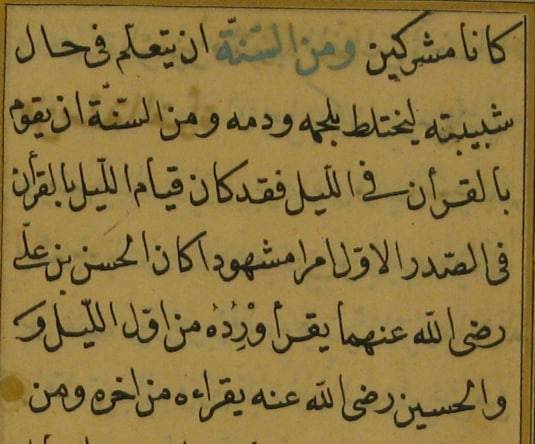 كانا مشركين ومن السّنّة ان يتعلّم فى حال
شبيبته ليختلط بلحمه ودمه ومن السّنّة ان يقوم
بالقرأن فى اللّيل فقد كان قيام اللّيل بالقرأن
فى الصّدر الاوّل امرا مشهودا كان الحسن بن علّى
رضى الله عنهما يقرأ وْرِدُهُ من اوّل اللّيل وك
والحسين رضى الله عنه يقراءه من اخره ومن